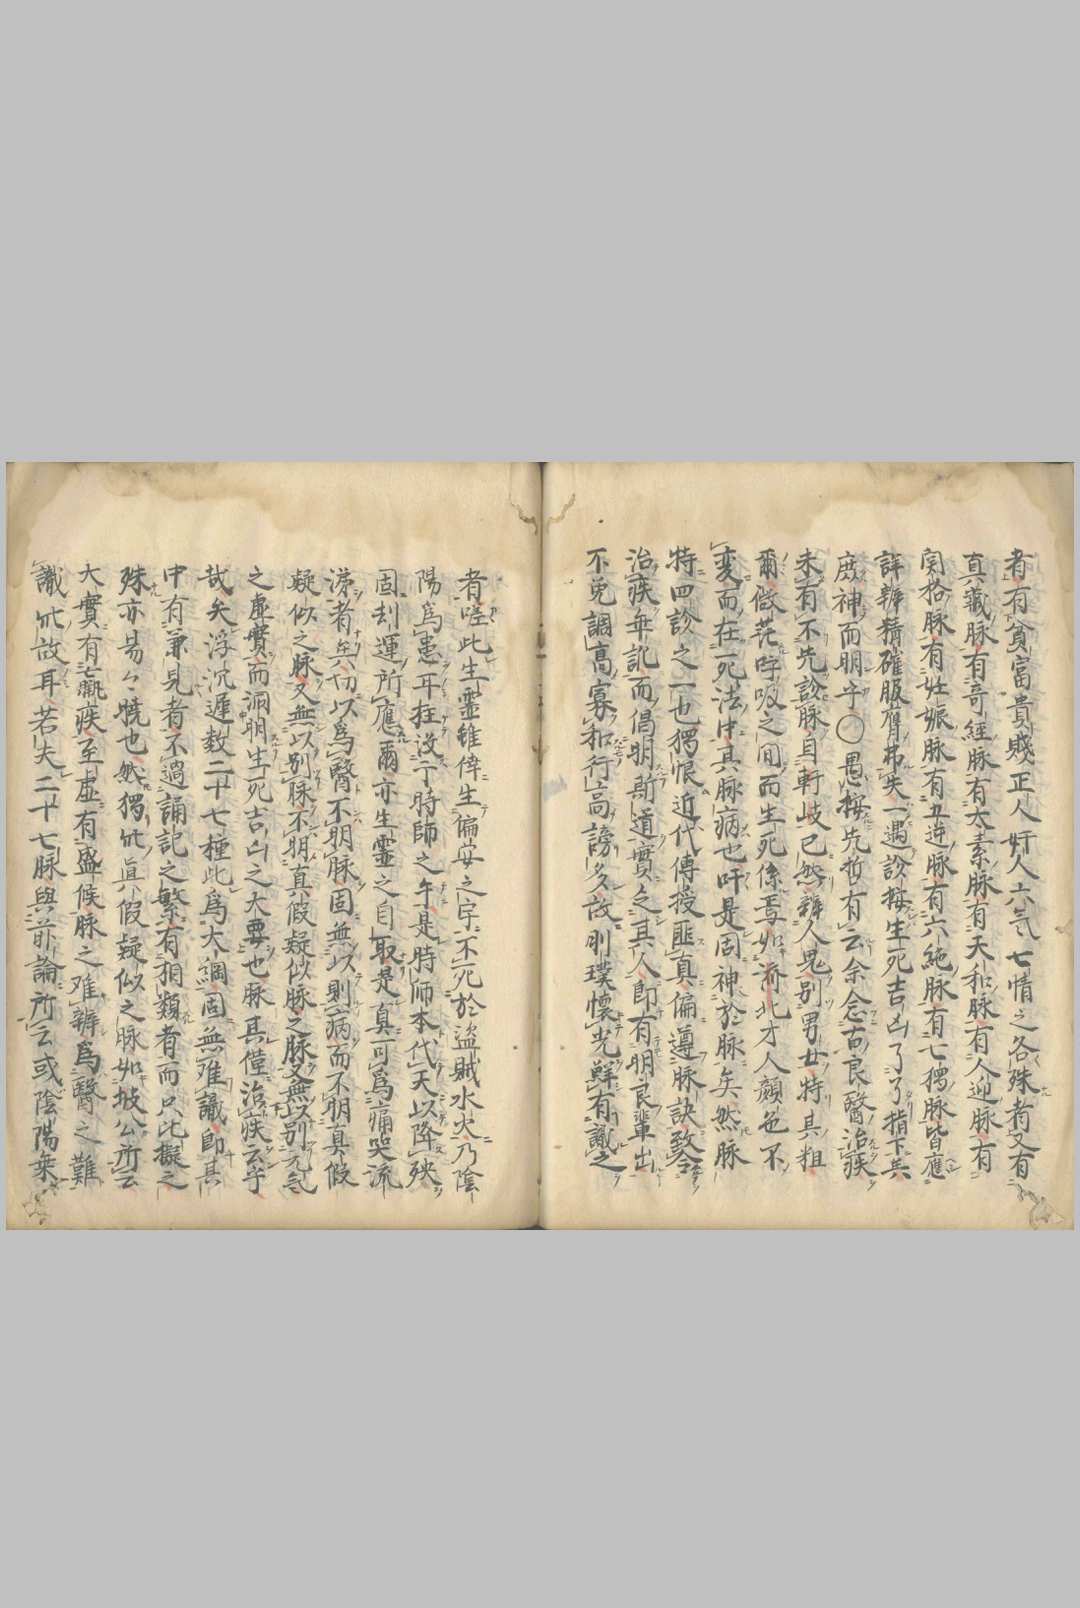 者有貧富貴賤正人奸人六气七情之各殊者又有
真蔵脉有奇經脉有大素脉有天和脉有人迎脉有
関格脉有妊娠脉有五逆脉有六絶脉有七獨脉皆應
詳辨精確服膺弗失一遇診按生死吉凶了了指下其
庶神而明乎〇愚按先哲有云余念古良醫治疾
未有不先診脉自軒岐已然辨人鬼別男女特其粗
爾儆荒呼吸之間而生死係焉如済北才人顔色不
変而在死法中其脉病也吁是固神於脉矣然脉
特四診之一也獨恨近代傳授匪真偏遵脉訣致令
治疾無訛而倡明斯道實之其人即有明良輩出
不免調高寡和行高謗多故刖璞懷光鮮有識之
者嗟此生靈雖倖生偏安之宇不死於盗賊水火乃陰
陽爲患耳枉没于時師之手是時師本代天以降殃
固刼運所應爾亦生靈之自取是真可爲痛哭流
涕者在六切以爲醫不明脉固無以則病而不明真假
疑似之脉又無以別脉不明真假疑似脉之脉又無以別元气
之虚實而洞明生死吉凶之大要也脉其僅治疾云乎
哉矣浮沉遲数二十七種此爲大綱固無難識即其
中有兼見者不過誦記之繁有相類者而只比擬之
殊亦易々曉也然獨於真假疑似之脉如坡公所云
大實有羸疾至虚有盛候脉之难辨爲醫之難
識於故耳若夫二十七脉與前論所云或陰陽乗